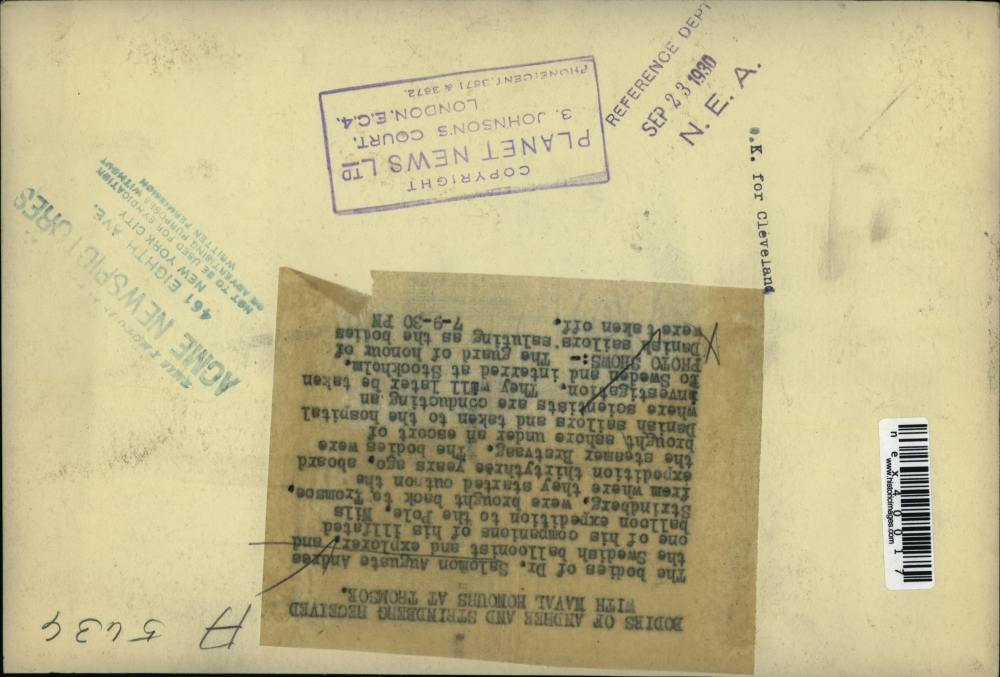 REFERENCE DEPT
SEP 23 1930
N. E. A.
O.K. for Cleveland
COPYRIGHT
PLANET NEWS LTD
3. JOHNSON'S COURT.
LONDON, E.C.4.
PHONE: CENT. 3871 & 3872.
ACME NEWSPICTURES
461 EIGHTH AVE.
NEW YORK CITY
NOT TO BE USED FOR SYNDICATION
OR ADVERTISING PURPOSES WITHOUT
WRITTEN PERMISSION
BODIES OF ANDREE AND STRINDBERG RECEIVED
WITH NAVAL HONOURS AT TROMSOE.
The bodies of Dr. Salomon Auguste Andree
the Swedish balloonist and explorer, and
one of his companions of his illfated
balloon expedition to the Pole, Nils
Strindberg, were brought back to Tromsoe,
from where they started out on the
expedition thirtythree years ago, aboard
the steamer Bratvaag. The bodies were
brought ashore under an escort of
Danish sailors and taken to the hospital
where scientists are conducting an
investigation. They will later be taken
to Sweden and interred at Stockholm.
PHOTO SHOWS:- The guard of honour of
Danish sailors saluting as the bodies
were taken off. 7-9-30 PN
A 5434
nex40017
www.historicimages.com